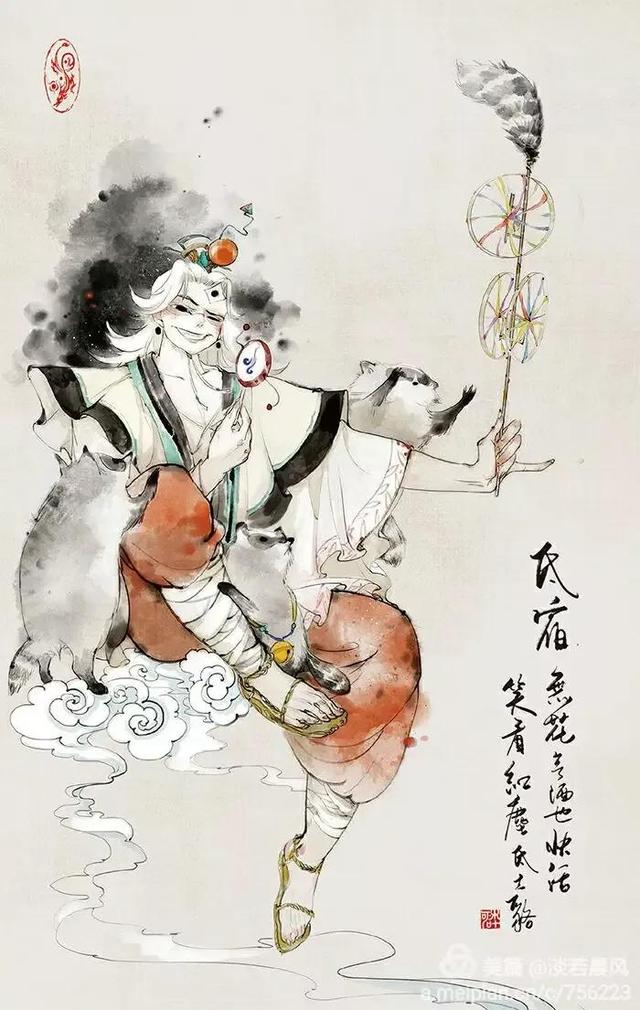 氐宿
無花无酒也快活
笑看紅塵氐土貉
美篇 @淡若晨风
a.meipian.cn/c/756223